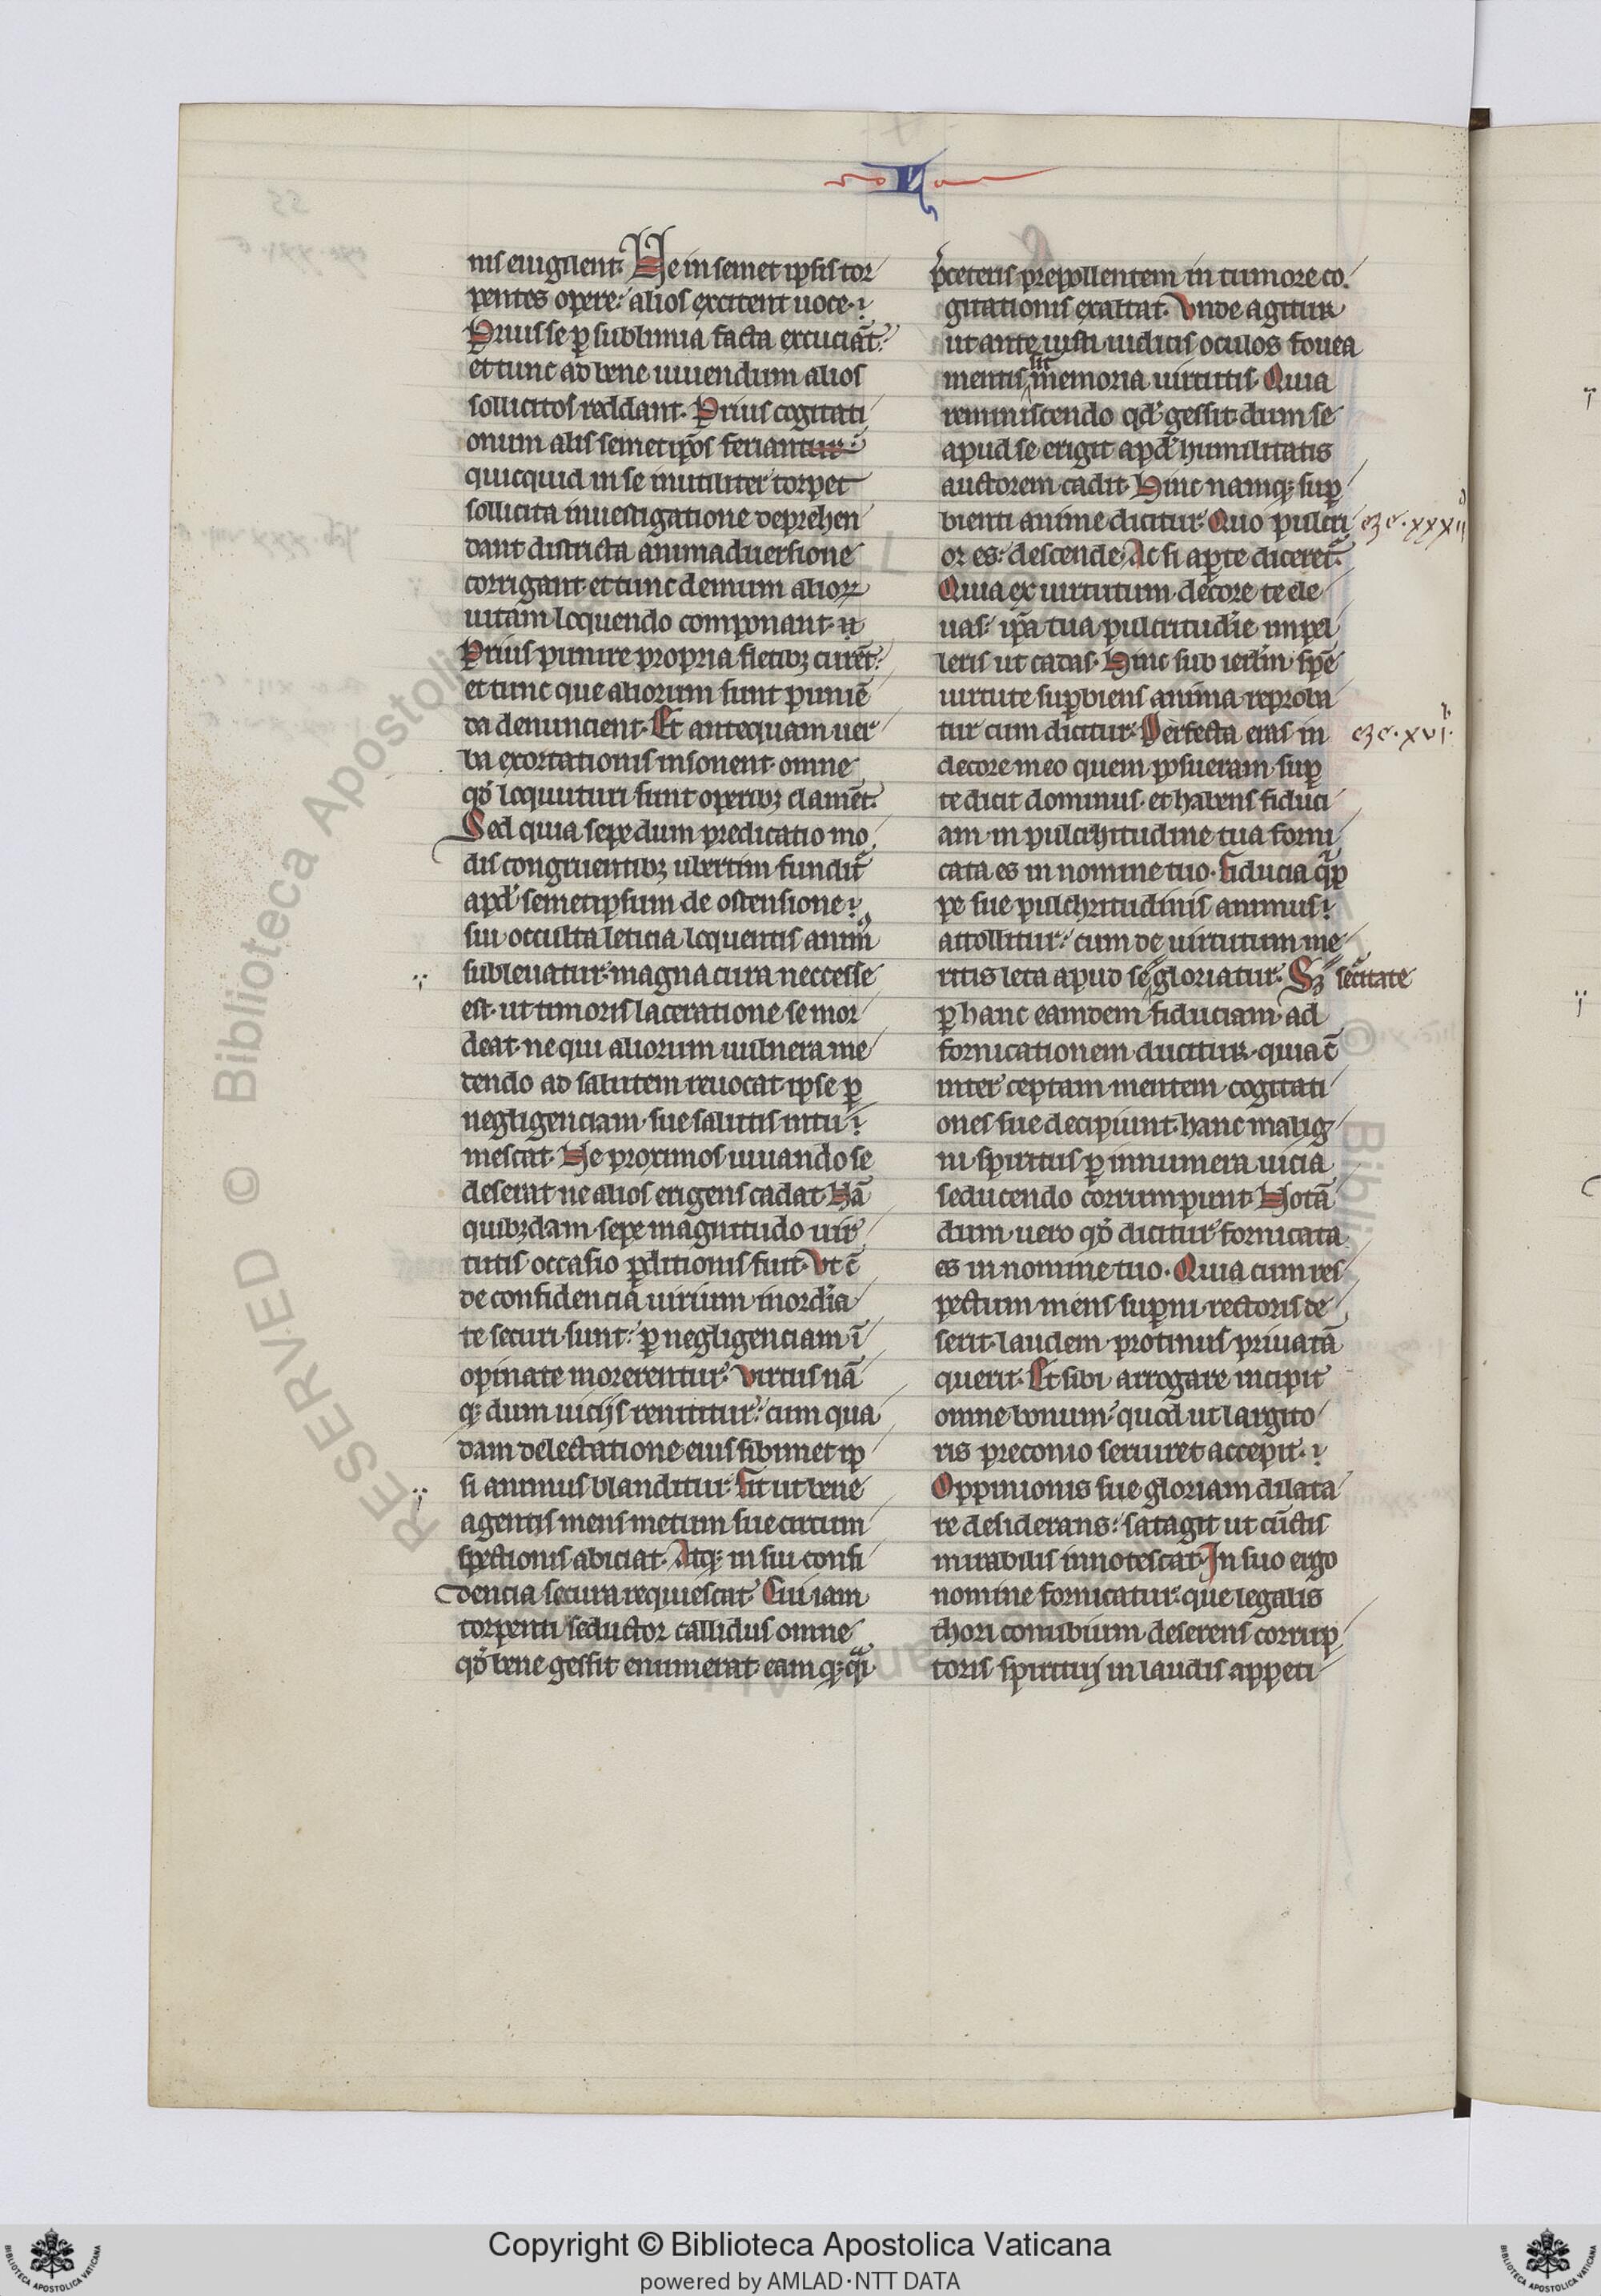 nis euigilent. Ne in semet ipsis tor
pentes opere: alios excitent uoce.
Prius se ꝑ sublimia facta excuciāt:
et tunc ad bene uiuendum alios
sollicitos reddant. Prius cogitati
onum alis semetip̄os feriant
quicquid in se inutiliter torpet
sollicita inuestigatione deprehen
dant districta animaduersione
corrigant. et tunc demum alioꝝ
uitam loquendo componant.
Prius punire propria fletibꝫ curēt:
et tunc que aliorum sunt puniē
da denuncient. Et antequam uer
ba exortationis insonent. omne
qd̓ loquuturi sunt operibꝫ clamēt.
Sed quia sepe dum predicatio mo
dis congruentibꝫ ubertim fundit᷑
apd̓ semetipsum de ostensione
sui occulta leticia loquentis animꝰ
subleuatur. magna cura neccesse
est. ut timoris laceratione se mor
deat. ne qui aliorum uulnera me
dendo ad salutem reuocat. ipse ꝑ
negligenciam sue salutis intu
mescat. Ne proximos iuuando se
deserat ne alios erigens cadat. Nā
quibꝫdam sepe magnitudo uir
tutis occasio ꝑditionis fuit. Vt c̄
de confidencia uirium inordīa
te securi sunt: ꝑ negligenciam ī
opinate morerentur. Virtus nā
qꝫ dum uicijs renititur: cum qua
dam delectatione eius sibimet ip
si animus blanditur. Fit ut bene
agentis mens metum sue circum
spectionis abiciat. Atqꝫ in sui confi
dencia secura requiescat. Cui iam
torpenti seductor callidus omne
qd̓ bene gessit enumerat. eamqꝫ qͣi
p̄ ceteris prepollentem in tumore co
gitationis exaltat. Vnde agitur
ut ante iusti iudicis oculos fouea
mentis sit memoria uirtutis. Quia
reminiscendo qd̓ gessit dum se
apud se erigit apd̓ humilitatis
auctorem cadit. Hinc namqꝫ suꝑ
bienti anime dicitur. Quo pulcri
eze. xxxii
or es: descende. Ac si aꝑte diceret᷑.
Quia ex uirtutum decore te ele
uas: ip̄a tua pulcritudīe impel
leris ut cadas. Hinc sub ierl̄m spē
uirtute suꝑbiens anima reproba
tur cum dicitur. Perfecta eras in
eze. xvi.
decore meo quem posueram suꝑ
te dicit dominus. et habens fiduci
am in pulchritudine tua forni
cata es in nomine tuo. Fiducia qͥp
pe sue pulchritudinis animus
attollitur: cum de uirtutum me
ritis leta apud se gloriatur. Sꝫ
ꝑ hanc eamdem fiduciam ad
fornicationem ducitur. quia c̄
inter ceptam mentem cogitati
ones sue decipiunt. hanc malig
ni spiritus ꝑ innumera uicia
seducendo corrumpunt. Notā
dum uero qd̓ dicitur fornicata
es in nomine tuo. Quia cum res
pectum mens suꝑni rectoris de
serit. laudem protinus priuatā
querit. Et sibi arrogare incipit
omne bonum. quod ut largito
ris preconio seruiret accepit.
Oppinionis sue gloriam dilata
re desiderans: satagit ut cūctis
mirabilis innotescat. In suo ergo
nomine fornicatur. que legalis
thori conubium deserens corrup
toris spiritui in laudis appeti
Copyright © Biblioteca Apostolica Vaticana
powered by AMLAD·NTT DATA